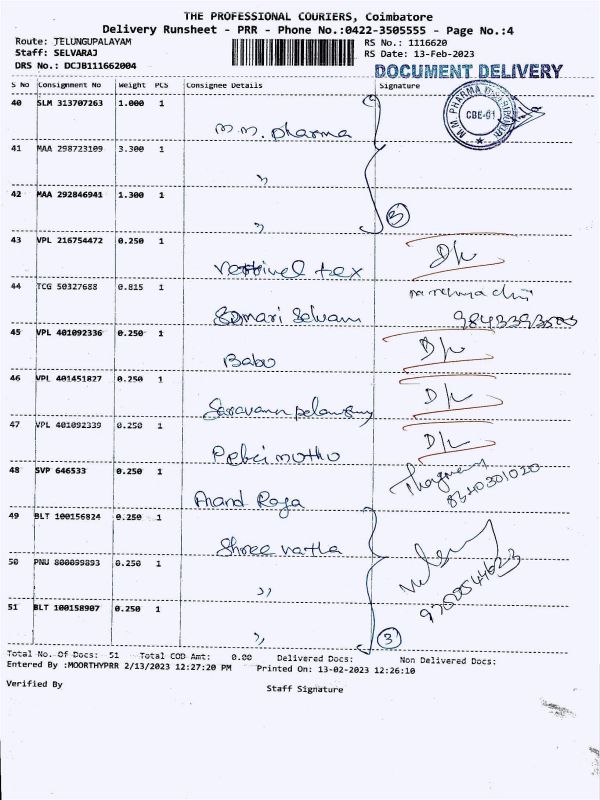 THE PROFESSIONAL COURIERS, Coimbatore
Delivery Runsheet - PRR - Phone No.:0422-3505555 - Page No.:4
Route: TELUNGUPALAYAM RS No.: 1116620
Staff: SELVARAJ RS Date: 13-Feb-2023
DRS No.: DCJB111662004
DOCUMENT DELIVERY
S No Consignment No Weight PCS Consignee Details Signature
40 SLM 313707263 1.000 1
M.M. Pharma
M.M. PHARMA CBE-01
41 MAA 298723109 3.300 1
"
42 MAA 292846941 1.300 1
"
3
43 VPL 216754472 0.250 1
Vettivel tex D/L
44 TCG 50327688 0.815 1
Selvam
45 VPL 401092336 0.250 1
Babu D/L
46 VPL 401451827 0.250 1
D/L
47 VPL 401092339 0.250 1
D/L
48 SVP 646533 0.250 1
Anand Raja 8340301020
49 BLT 100156824 0.250 1
Shree vatla
50 PNU 800099893 0.250 1
"
51 BLT 100158907 0.250 1
"
3
Total No. Of Docs: 51 Total COD Amt: 0.00 Delivered Docs: Non Delivered Docs:
Entered By :MOORTHYPRR 2/13/2023 12:27:20 PM Printed On: 13-02-2023 12:26:10
Verified By Staff Signature